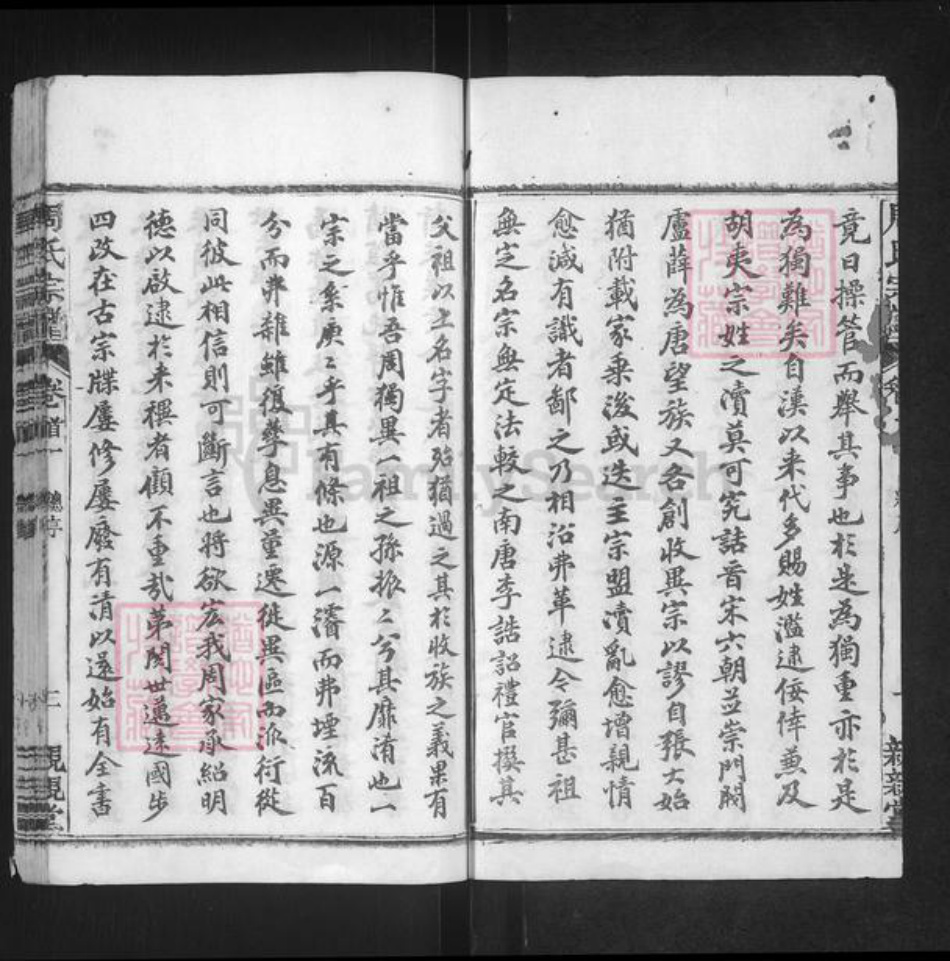 竟日操管而舉其事也於是為獨重亦於是
為獨難矣自漢以来代多賜姓濫逮佞倖兼及
胡夷宗姓之瀆莫可究詰晉宋六朝並崇門閥
盧薛為唐望族又各創收異宗以謬自張大始
猶附載家乘後或迭主宗盟瀆亂愈增親情
愈減有識者鄙之乃相沿弗革逮今彌甚祖
無定名宗無定法較之南唐李誥詔禮官撰其
父祖以上名字者殆猶過之其於收族之義果有
當乎惟吾周獨異一祖之孫振〻兮其靡淆也一
宗之系庚〻乎其有條也源一濬而弗堙流百
分而弗雜雖復孳息異量遷徙異區而派衍從
同彼此相信則可斷言也將欲宏我周家承紹明
德以啟逮於来禩者顧不重哉第閱世邁遠國步
四改在古宗牒屢修屢廢有清以還始有全書
周氏宗譜
卷首一
總序
二
親親堂